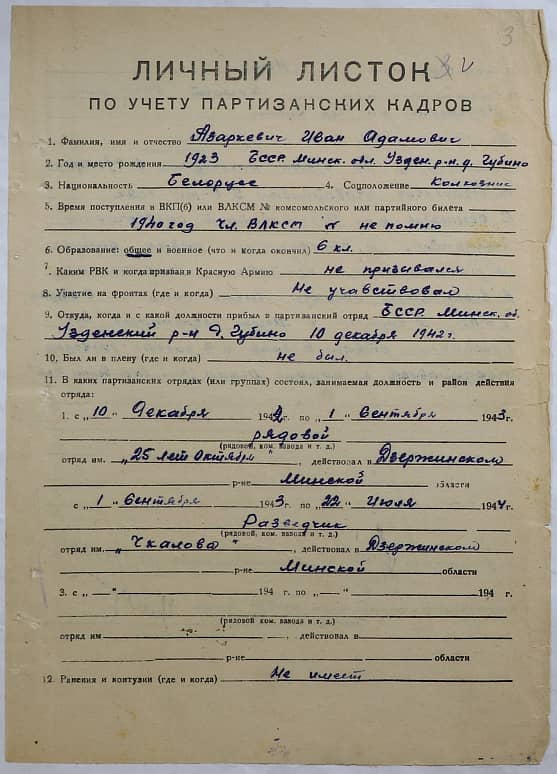 3
ЛИЧНЫЙ ЛИСТОК
ПО УЧЕТУ ПАРТИЗАНСКИХ КАДРОВ
1. Фамилия, имя и отчество Азаркевич Иван Адамович
2. Год и место рождения 1923 БССР Минск. обл. Узден. р-н д. Губино
3. Национальность Белорусс 4. Соцположение Колхозник
5. Время поступления в ВКП(б) или ВЛКСМ № комсомольского или партийного билета
1940 год Чл. ВЛКСМ № не помню
6. Образование: общее и военное (что и когда окончил) 6 кл.
7. Каким РВК и когда призван в Красную Армию не призывался
8. Участие на фронтах (где и когда) Не учавствовал
9. Откуда, когда и с какой должности прибыл в партизанский отряд БССР Минск. об.
Узденский р-н д. Губино 10 декабря 1942 г.
10. Был ли в плену (где и когда) не был.
11. В каких партизанских отрядах (или группах) состоял, занимаемая должность и район действия
отряда:
1. с „10" Декабря 1942 г. по „1" Сентября 1943 г.
рядовой
(рядовой, ком. взвода и т. д.)
отряд им. „25 лет Октября", действовал в Дзержинском
р-не Минской области
с „1" Сентября 1943 г. по „22" Июля 1944 г.
Разведчик
(рядовой, ком. взвода и т. д.)
отряд им. „Чкалова", действовал в Дзержинском
р-не Минской области
3. с „—" 194 г. по „—" 194 г.
(рядовой, ком. взвода и т. д.)
отряд им , действовал в
р-не области
12. Ранения и контузии (где и когда) Не имеет